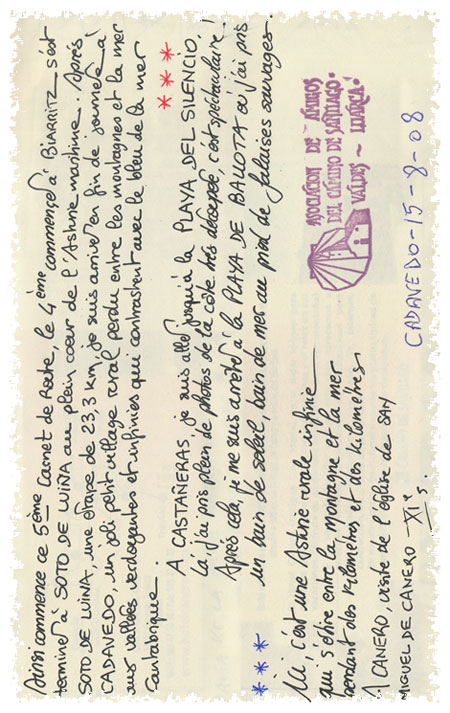 Ainsi commence ce 5ème Carnet de Route, le 4ème commencé à BIARRITZ s'est
terminé à SOTO DE LUIÑA au plein coeur de l'Asturie maritime. Après
SOTO DE LUIÑA, une étape de 23,3 km, je suis arrivé en fin de journée à
CADAVEDO, un joli petit village rural perdu entre les montagnes et la mer
aux vallées verdoyantes et infinies qui contrastent avec le bleu de la mer
Cantabrique.
***
A CASTAÑERAS, je suis allé jusqu'à la PLAYA DEL SILENCIO.
Là, j'ai pris plein de photos de la côte très découpée, c'est spectaculaire!
Après cela, je me suis arrêté à la PLAYA DE BALLOTA où j'ai pris
un bain de soleil, bain de mer au pied de falaises sauvages.
***
Ici, c'est une Asturie rurale infinie
qui s'étire entre la montagne et la mer
pendant des kilomètres et des kilomètres
A CANERO, visite de l'église de SAN
MIGUEL DE CANERO XIIe s.
ASOCIACIÓN DE AMIGOS
DEL CAMINO DE SANTIAGO
VALDES ~ LUARCA
CADAVEDO-15-8-08